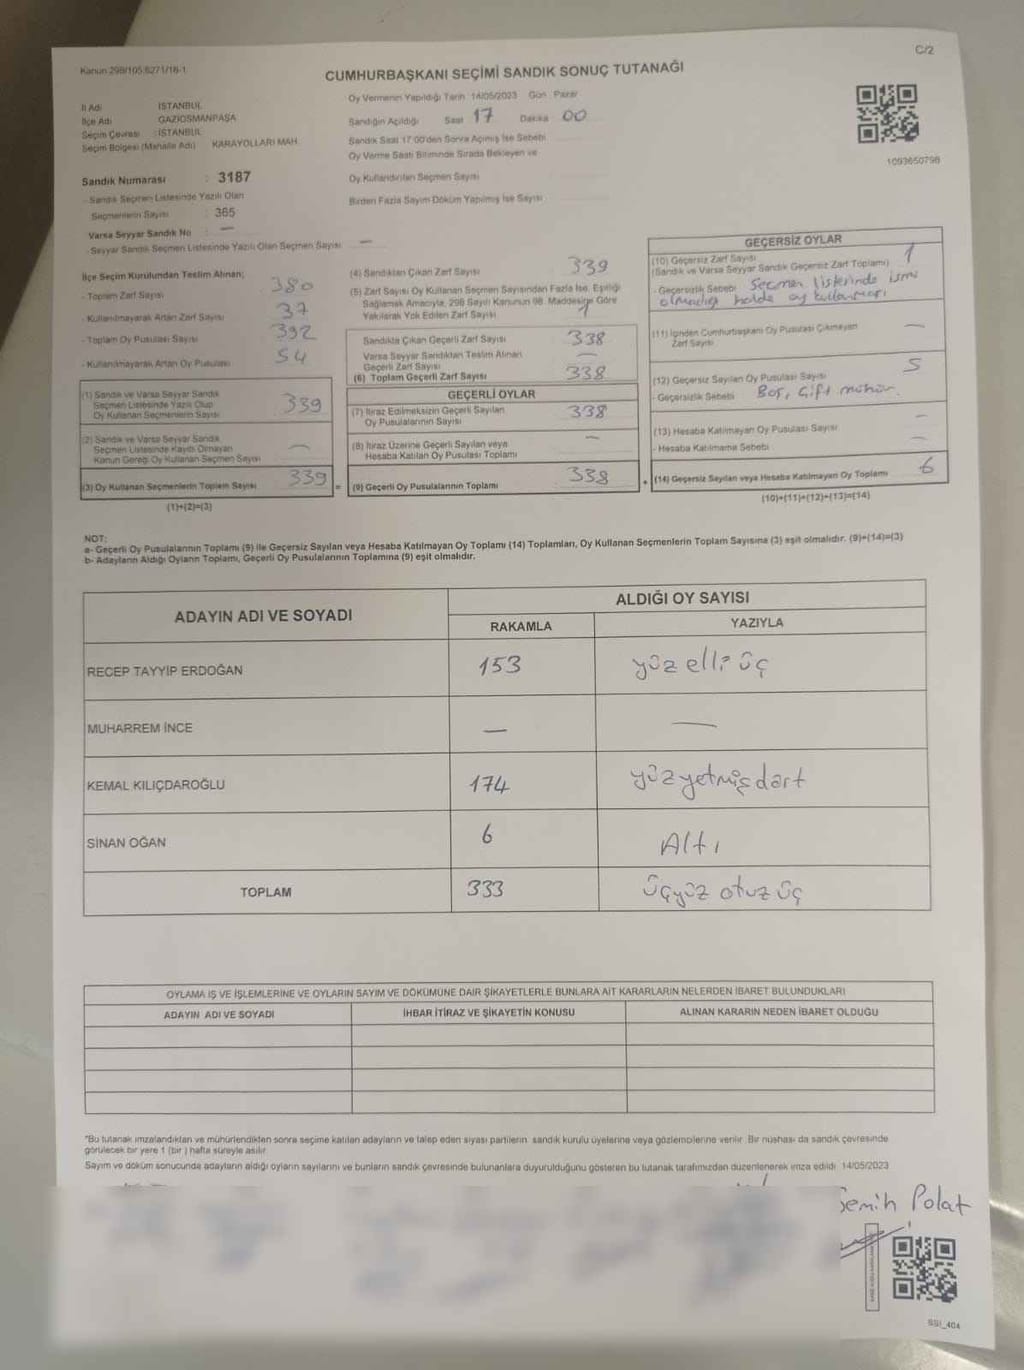 C/2
Kanun 298/105:6271/16-1
CUMHURBAŞKANI SEÇİMİ SANDIK SONUÇ TUTANAĞI
İl Adı : İSTANBUL
İlçe Adı : GAZİOSMANPAŞA
Seçim Çevresi : İSTANBUL
Seçim Bölgesi (Mahalle Adı) KARAYOLLARI MAH.
Sandık Numarası : 3187
- Sandık Seçmen Listesinde Yazılı Olan
Seçmenlerin Sayısı : 365
Varsa Seyyar Sandık No : —
- Seyyar Sandık Seçmen Listesinde Yazılı Olan Seçmen Sayısı —
Oy Vermenin Yapıldığı Tarih :14/05/2023 Gün : Pazar
Sandığın Açıldığı Saat 17 Dakika 00
Sandık Saat 17:00'den Sonra Açılmış İse Sebebi
Oy Verme Saati Bitiminde Sırada Bekleyen ve
Oy Kullandırılan Seçmen Sayısı
Birden Fazla Sayım Döküm Yapılmış İse Sayısı
1093650798
İlçe Seçim Kurulundan Teslim Alınan;
- Toplam Zarf Sayısı 380
- Kullanılmayarak Artan Zarf Sayısı 37
- Toplam Oy Pusulası Sayısı 392
- Kullanılmayarak Artan Oy Pusulası 54
(1) Sandık ve Varsa Seyyar Sandık
Seçmen Listesinde Yazılı Olup
Oy Kullanan Seçmenlerin Sayısı 339
(2) Sandık ve Varsa Seyyar Sandık
Seçmen Listesinde Kayıtlı Olmayan
Kanun Gereği Oy Kullanan Seçmen Sayısı —
(3) Oy Kullanan Seçmenlerin Toplam Sayısı 339 =
(1)+(2)=(3)
(4) Sandıktan Çıkan Zarf Sayısı 339
(5) Zarf Sayısı Oy Kullanan Seçmen Sayısından Fazla İse, Eşitliği
Sağlamak Amacıyla, 298 Sayılı Kanunun 98. Maddesine Göre
Yakılarak Yok Edilen Zarf Sayısı 1
Sandıkta Çıkan Geçerli Zarf Sayısı 338
Varsa Seyyar Sandıktan Teslim Alınan
Geçerli Zarf Sayısı —
(6) Toplam Geçerli Zarf Sayısı 338
GEÇERLİ OYLAR
(7) İtiraz Edilmeksizin Geçerli Sayılan
Oy Pusulalarının Sayısı 338
(8) İtiraz Üzerine Geçerli Sayılan veya
Hesaba Katılan Oy Pusulası Toplamı —
(9) Geçerli Oy Pusulalarının Toplamı 338 +
GEÇERSİZ OYLAR
(10) Geçersiz Zarf Sayısı 1
(Sandık ve Varsa Seyyar Sandık Geçersiz Zarf Toplamı)
- Geçersizlik Sebebi Seçmen listerinde ismi
olmadığı halde oy kullanması
(11) İçinden Cumhurbaşkanı Oy Pusulası Çıkmayan
Zarf Sayısı —
(12) Geçersiz Sayılan Oy Pusulası Sayısı 5
- Geçersizlik Sebebi Boş, çift mühür.
(13) Hesaba Katılmayan Oy Pusulası Sayısı —
- Hesaba Katılmama Sebebi —
(14) Geçersiz Sayılan veya Hesaba Katılmayan Oy Toplamı 6
(10)+(11)+(12)+(13)=(14)
NOT:
a- Geçerli Oy Pusulalarının Toplamı (9) ile Geçersiz Sayılan veya Hesaba Katılmayan Oy Toplamı (14) Toplamları, Oy Kullanan Seçmenlerin Toplam Sayısına (3) eşit olmalıdır. (9)+(14)=(3)
b- Adayların Aldığı Oyların Toplamı, Geçerli Oy Pusulalarının Toplamına (9) eşit olmalıdır.
ADAYIN ADI VE SOYADI ALDIĞI OY SAYISI
RAKAMLA YAZIYLA
RECEP TAYYİP ERDOĞAN 153 yüz elli üç
MUHARREM İNCE — —
KEMAL KILIÇDAROĞLU 174 yüz yetmiş dört
SİNAN OĞAN 6 Altı
TOPLAM 333 üçyüz otuz üç
OYLAMA İŞ VE İŞLEMLERİNE VE OYLARIN SAYIM VE DÖKÜMÜNE DAİR ŞİKAYETLERLE BUNLARA AİT KARARLARIN NELERDEN İBARET BULUNDUKLARI
ADAYIN ADI VE SOYADI İHBAR İTİRAZ VE ŞİKAYETİN KONUSU ALINAN KARARIN NEDEN İBARET OLDUĞU
*Bu tutanak imzalandıktan ve mühürlendikten sonra seçime katılan adayların ve talep eden siyasi partilerin sandık kurulu üyelerine veya gözlemcilerine verilir. Bir nüshası da sandık çevresinde
görülecek bir yere 1 (bir ) hafta süreyle asılır.
Sayım ve döküm sonucunda adayların aldığı oyların sayılarını ve bunların sandık çevresinde bulunanlara duyurulduğunu gösteren bu tutanak tarafımızdan düzenlenerek imza edildi. 14/05/2023
Semih Polat
SSI_404